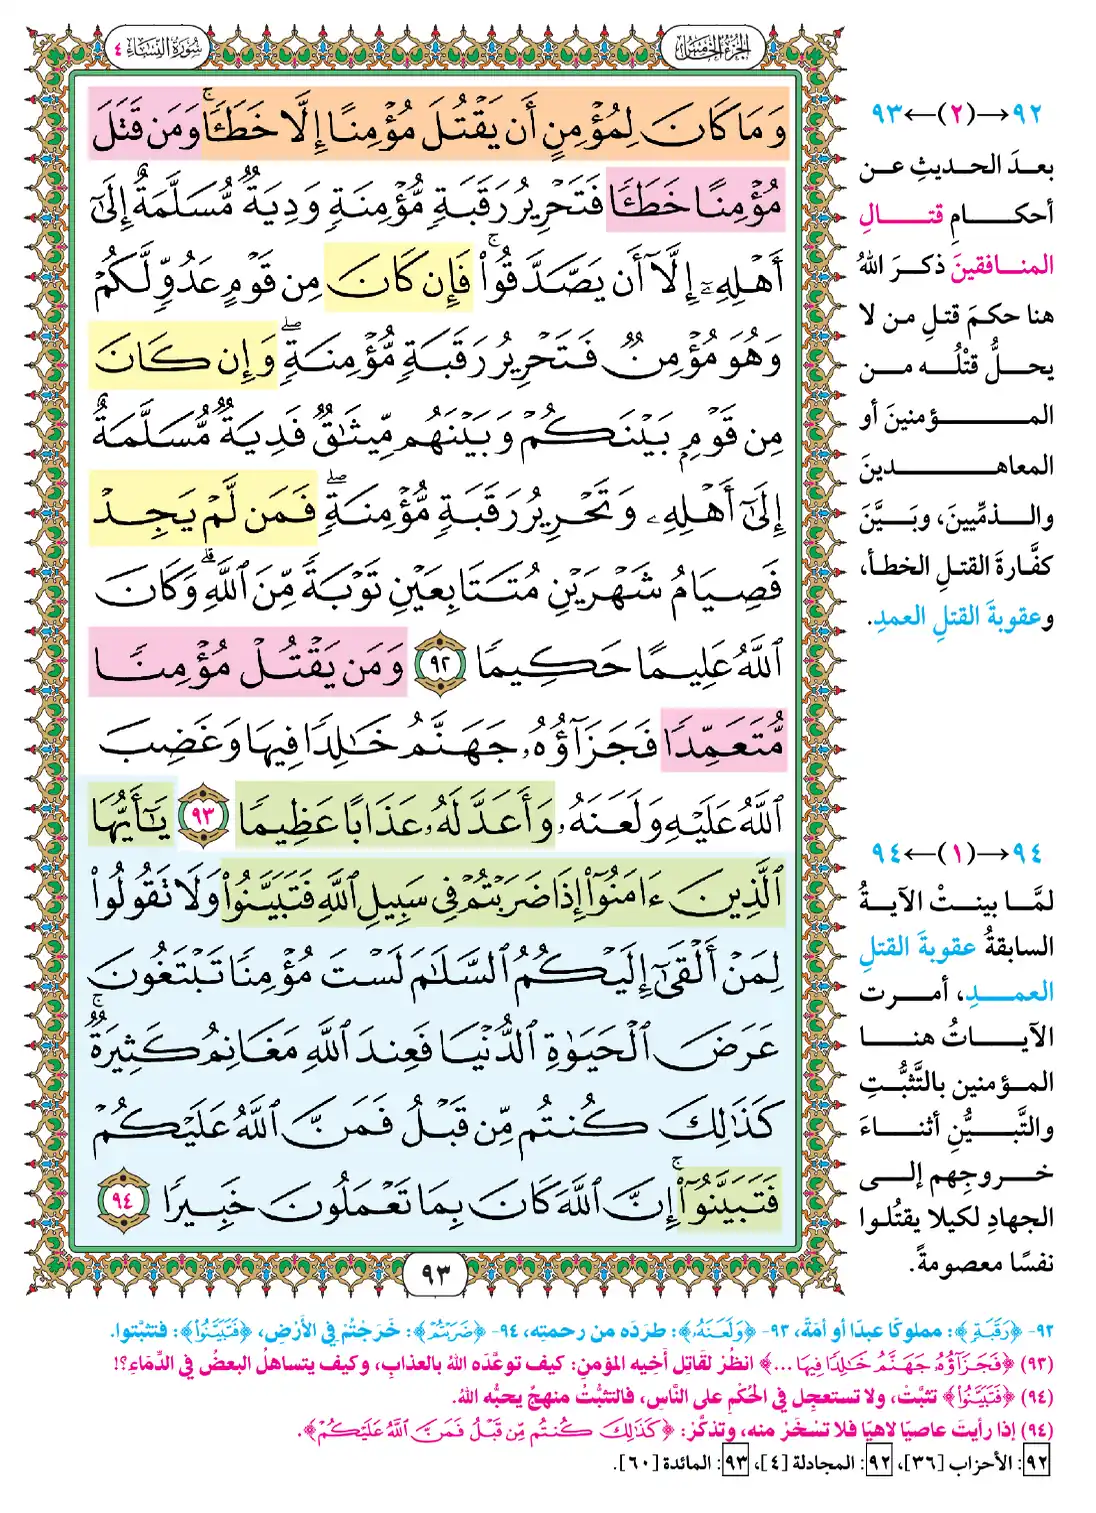 الجزء الخامس
سورة النساء ٤
وَمَا كَانَ لِمُؤْمِنٍ أَن يَقْتُلَ مُؤْمِنًا إِلَّا خَطَـًٔا ۚ وَمَن قَتَلَ
مُؤْمِنًا خَطَـًٔا فَتَحْرِيرُ رَقَبَةٍ مُّؤْمِنَةٍ وَدِيَةٌ مُّسَلَّمَةٌ إِلَىٰٓ
أَهْلِهِۦٓ إِلَّآ أَن يَصَّدَّقُوا۟ ۚ فَإِن كَانَ مِن قَوْمٍ عَدُوٍّ لَّكُمْ
وَهُوَ مُؤْمِنٌ فَتَحْرِيرُ رَقَبَةٍ مُّؤْمِنَةٍ ۖ وَإِن كَانَ
مِن قَوْمٍۭ بَيْنَكُمْ وَبَيْنَهُم مِّيثَـٰقٌ فَدِيَةٌ مُّسَلَّمَةٌ
إِلَىٰٓ أَهْلِهِۦ وَتَحْرِيرُ رَقَبَةٍ مُّؤْمِنَةٍ ۖ فَمَن لَّمْ يَجِدْ
فَصِيَامُ شَهْرَيْنِ مُتَتَابِعَيْنِ تَوْبَةً مِّنَ ٱللَّهِ ۗ وَكَانَ
ٱللَّهُ عَلِيمًا حَكِيمًا ٩٢ وَمَن يَقْتُلْ مُؤْمِنًا
مُّتَعَمِّدًا فَجَزَآؤُهُۥ جَهَنَّمُ خَـٰلِدًا فِيهَا وَغَضِبَ
ٱللَّهُ عَلَيْهِ وَلَعَنَهُۥ وَأَعَدَّ لَهُۥ عَذَابًا عَظِيمًا ٩٣ يَـٰٓأَيُّهَا
ٱلَّذِينَ ءَامَنُوٓا۟ إِذَا ضَرَبْتُمْ فِى سَبِيلِ ٱللَّهِ فَتَبَيَّنُوا۟ وَلَا تَقُولُوا۟
لِمَنْ أَلْقَىٰٓ إِلَيْكُمُ ٱلسَّلَـٰمَ لَسْتَ مُؤْمِنًا تَبْتَغُونَ
عَرَضَ ٱلْحَيَوٰةِ ٱلدُّنْيَا فَعِندَ ٱللَّهِ مَغَانِمُ كَثِيرَةٌ ۚ
كَذَٰلِكَ كُنتُم مِّن قَبْلُ فَمَنَّ ٱللَّهُ عَلَيْكُمْ
فَتَبَيَّنُوٓا۟ ۚ إِنَّ ٱللَّهَ كَانَ بِمَا تَعْمَلُونَ خَبِيرًا ٩٤
٩٣
٩٢→(٢)←٩٣
بعدَ الحديثِ عن
أحكامِ قتالِ
المنافقينَ ذكرَ اللهُ
هنا حكمَ قتلِ من لا
يحلُّ قتْلُه من
المؤمنينَ أو
المعاهدينَ
والذمِّيينَ، وبَيَّنَ
كفَّارةَ القتلِ الخطأ،
وعقوبةَ القتلِ العمدِ.
٩٤→(١)←٩٤
لمَّا بينتْ الآيةُ
السابقةُ عقوبةَ القتلِ
العمدِ، أمرت
الآياتُ هنا
المؤمنين بالتَّثبُّتِ
والتَّبيُّنِ أثناءَ
خروجِهم إلى
الجهادِ لكيلا يقتُلوا
نفسًا معصومةً.
٩٢- ﴿رَقَبَةٍ﴾: مملوكًا عبدًا أو أمَةً، ٩٣- ﴿وَلَعَنَهُۥ﴾: طرَدَه من رحمتِه، ٩٤- ﴿ضَرَبْتُمْ﴾: خَرَجْتُمْ في الأرْضِ، ﴿فَتَبَيَّنُوا۟﴾: فتثبَّتوا.
(٩٣) ﴿فَجَزَآؤُهُۥ جَهَنَّمُ خَـٰلِدًا فِيهَا ...﴾ انظُر لقَاتِلِ أخِيه المؤمنِ: كيف توعَّدَه اللهُ بالعذابِ، وكيف يتساهلُ البعضُ في الدِّمَاءِ؟!
(٩٤) ﴿فَتَبَيَّنُوا۟﴾ تثبَّتْ، ولا تستعجِل في الحُكْمِ على النَّاسِ، فالتثبُّتُ منهجٌ يحبُّه اللهُ.
(٩٤) إذا رأيتَ عاصيًا لاهيًا فلا تسْخَرْ منه، وتذكَّرْ: ﴿كَذَٰلِكَ كُنتُم مِّن قَبْلُ فَمَنَّ ٱللَّهُ عَلَيْكُمْ﴾.
٩٢: الأحزاب [٣٦]، ٩٢: المجادلة [٤]، ٩٣: المائدة [٦٠].